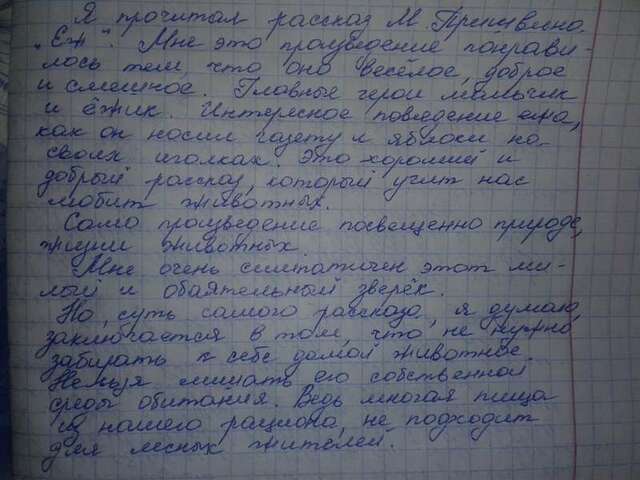 Я прочитал рассказ М. Пришвина
„Еж". Мне это произведение понрави-
лось тем, что оно весёлое, доброе
и смешное. Главное герои мальчик
и ёжик. Интересное поведение ежа,
как он носил газету и яблоки на
своих иголках. Это хороший и
добрый рассказ который учит нас
любить животных.
Само произведение посвещенно природе,
точнее животных.
Мне очень симпатичен этот ми-
лый и обаятельный зверёк.
Но, суть самого рассказа, я думаю
закладывается в том что, не нужно,
забирать к себе домой животное.
Нельзя лишать его собственной
среды обитания. Ведь многая пища
из нашего рациона не подходит
для лесных жителей.